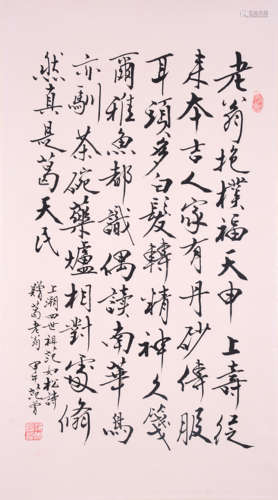 老翁抱樸福天申 上壽從
来本吉人家有丹砂傳服
耳頭多白髮轉精神久箋
爾雅魚都識偶讀南華馬
亦馴 茶碗藥爐相對處翛
然真是葛天民
上溯四世祖范如松詩
贈葛老翁 甲午 范曾